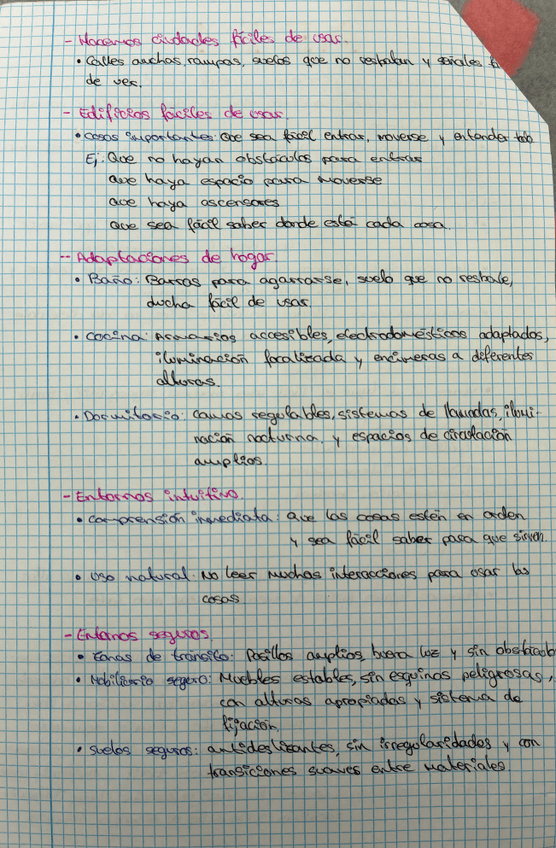 - Hacemos ciudades fáciles de usar.
• Calles anchas, rampas, suelos que no resbalan y señales
de ver.
- Edificios fáciles de usar.
• cosas importantes: Que sea fácil entrar, moverse y entender todo
Ej: Que no hayan obstáculos para entrar
que haya espacio para moverse
que haya ascensores
Que sea fácil saber donde está cada cosa.
-- Adaptaciones de hogar
• Baño: Barras para agarrarse, suelo que no resbale,
ducha fácil de usar.
• Cocina: Armarios accesibles, electrodomésticos adaptados,
iluminación focalizada y encimeras a diferentes
alturas.
• Dormitorio: camas regulables, sistemas de llamadas, ilumi-
nación nocturna, y espacios de circulación
amplios.
- Entornos intuitivo.
• comprensión inmediata: que las cosas estén en orden
y sea fácil saber para que sirven.
• Uso natural: No leer muchas interacciones para usar las
cosas
- Entornos seguros.
• Zonas de tránsito: Pasillos amplios, buena luz y sin obstáculo
• Mobiliario seguro: Muebles estables, sin esquinas peligrosas,
con alturas apropiadas y sistema de
fijación.
• Suelos seguros: antideslizantes, sin irregularidades y con
transiciones suaves entre materiales.